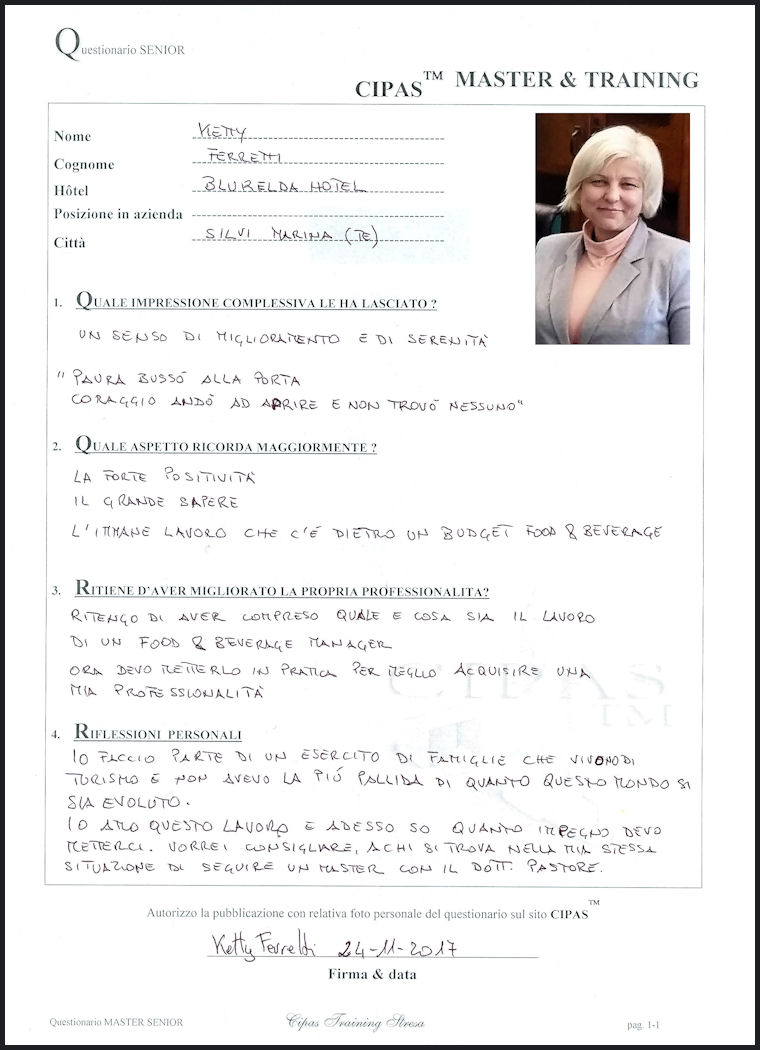 Questionario SENIOR
CIPAS™ MASTER & TRAINING
Nome KETTY
Cognome FERRETTI
Hôtel BLURELDA HOTEL
Posizione in azienda
Città SILVI MARINA (TE)
1. QUALE IMPRESSIONE COMPLESSIVA LE HA LASCIATO ?
UN SENSO DI MIGLIORAMENTO E DI SERENITÀ
"PAURA BUSSÒ ALLA PORTA
CORAGGIO ANDÒ AD APRIRE E NON TROVÒ NESSUNO"
2. QUALE ASPETTO RICORDA MAGGIORMENTE ?
LA FORTE POSITIVITÀ
IL GRANDE SAPERE
L'IMMANE LAVORO CHE C'É DIETRO UN BUDGET FOOD & BEVERAGE
3. RITIENE D'AVER MIGLIORATO LA PROPRIA PROFESSIONALITA?
RITENGO DI AVER COMPRESO QUALE E COSA SIA IL LAVORO
DI UN FOOD & BEVERAGE MANAGER
ORA DEVO METTERLO IN PRATICA PER MEGLIO ACQUISIRE UNA
MIA PROFESSIONALITÀ
CIPAS
TM
4. RIFLESSIONI PERSONALI
IO FACCIO PARTE DI UN ESERCITO DI FAMIGLIE CHE VIVONO DI
TURISMO E NON AVEVO LA PIÚ PALLIDA DI QUANTO QUESTO MONDO SI
SIA EVOLUTO.
IO AMO QUESTO LAVORO E ADESSO SO QUANTO IMPEGNO DEVO
METTERCI. VORREI CONSIGLIARE, A CHI SI TROVA NELLA MIA STESSA
SITUAZIONE DI SEGUIRE UN MASTER CON IL DOTT. PASTORE.
Autorizzo la pubblicazione con relativa foto personale del questionario sul sito CIPAS™
Ketty Ferretti 24-11-2017
Firma & data
Questionario MASTER SENIOR Cipas Training Stresa pag. 1-1